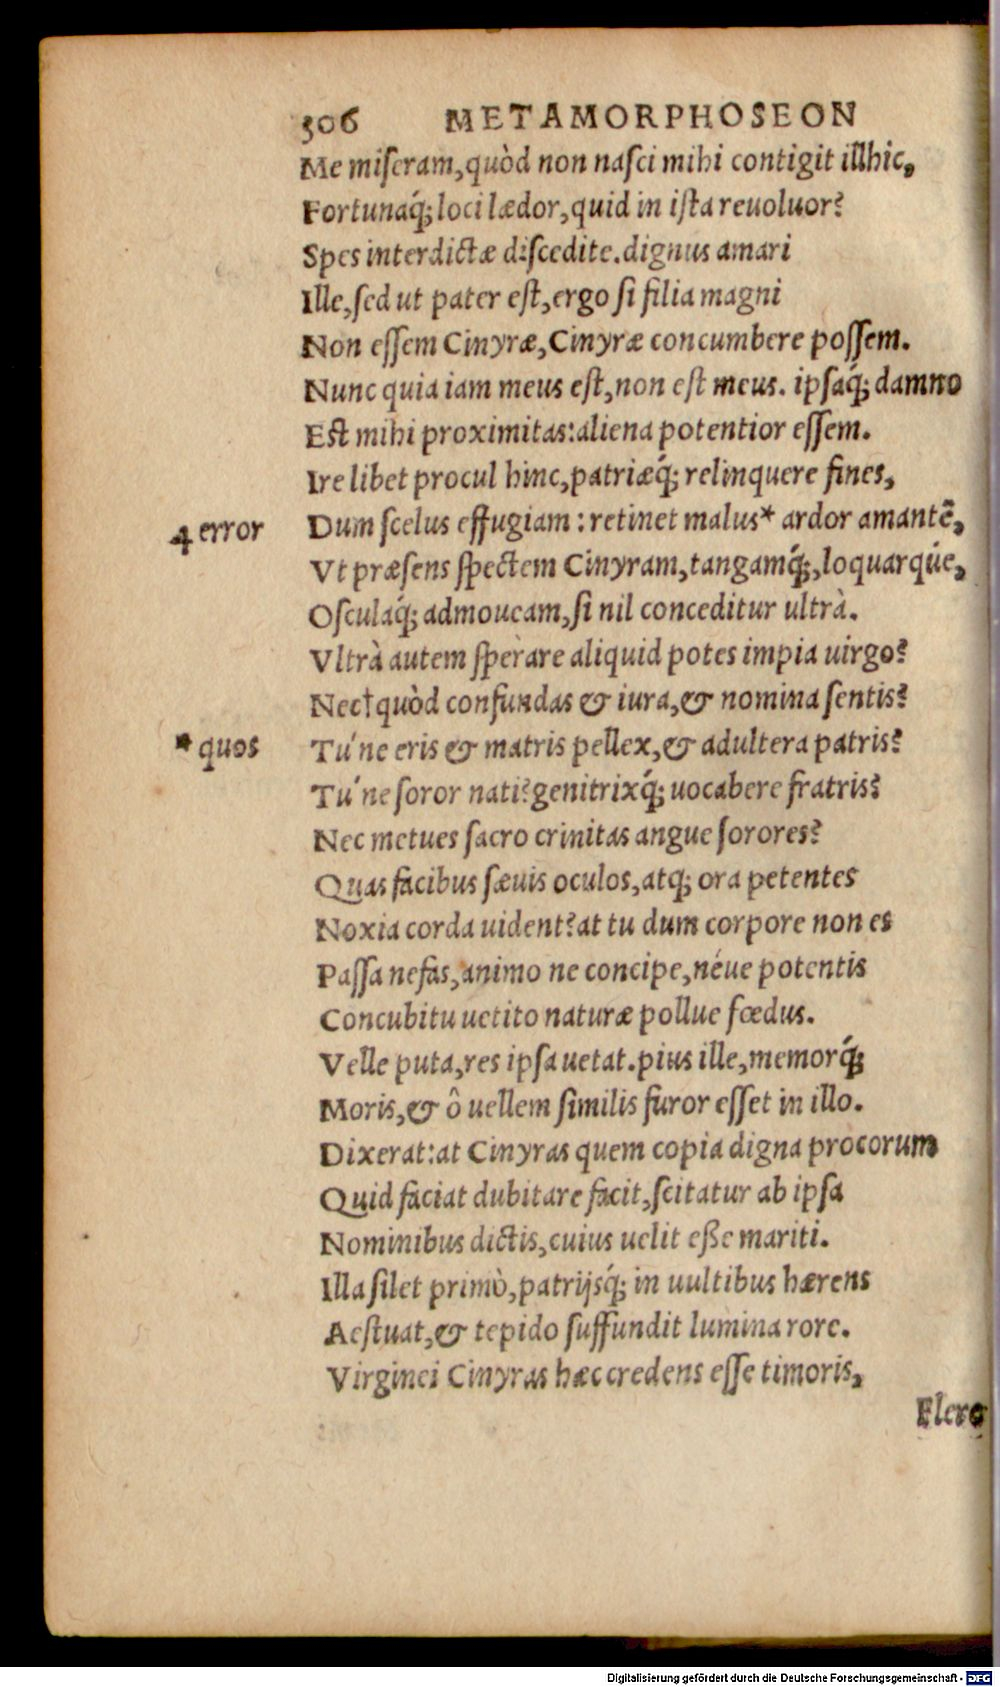 306 METAMORPHOSEON
Me miſeram,quòd non naſci mihi contigit illhic,
Fortunaq́;loci lædor,quid in iſta reuoluor?
Spes interdictæ diſcedite.dignus amari
Ille,ſed ut pater eſt,ergo ſi filia magni
Non eſſem Cinyræ,Cinyræ concumbere poſſem.
Nunc quia iam meus eſt,non eſt meus. ipſaq́; damno
Est mihi proximitas:aliena potentior eſſem.
Ire libet procul hinc,patriæq́; relinquere fines,
4 error Dum ſcelus effugiam : retinet malus* ardor amantē,
Vt præſens ſpectem Cinyram,tangamq́;,loquarqúe,
Oſculaq́; admoueam,ſi nil conceditur ultrà.
Vltrà autem ſperare aliquid potes impia uirgo?
Nec†quòd confundas & iura,& nomina ſentis?
* quos Tu´ne eris & matris pellex,& adultera patris?
Tu´ne ſoror nati?genitrixq́; uocabere fratris?
Nec metues ſacro crinitas angue ſorores?
Quas facibus ſæuis oculos,atq; ora petentes
Noxia corda uident?at tu dum corpore non es
Paſſa nefas,animo ne concipe,néue potentis
Concubitu uetito naturæ pollue fœdus.
Velle puta,res ipſa uetat.pius ille,memorq́;
Moris,& ô uellem ſimilis furor eſſet in illo.
Dixerat:at Cinyras quem copia digna procorum
Quid faciat dubitare facit,ſcitatur ab ipſa
Nominibus dictis,cuius uelit eße mariti.
Illa ſilet primò,patrijsq́; in uultibus hærens
Aeſtuat,& tepido ſuffundit lumina rore.
Virginei Cinyras hæc credens eſſe timoris,
Flere
Digitalisierung gefördert durch die Deutsche Forschungsgemeinschaft - DFG